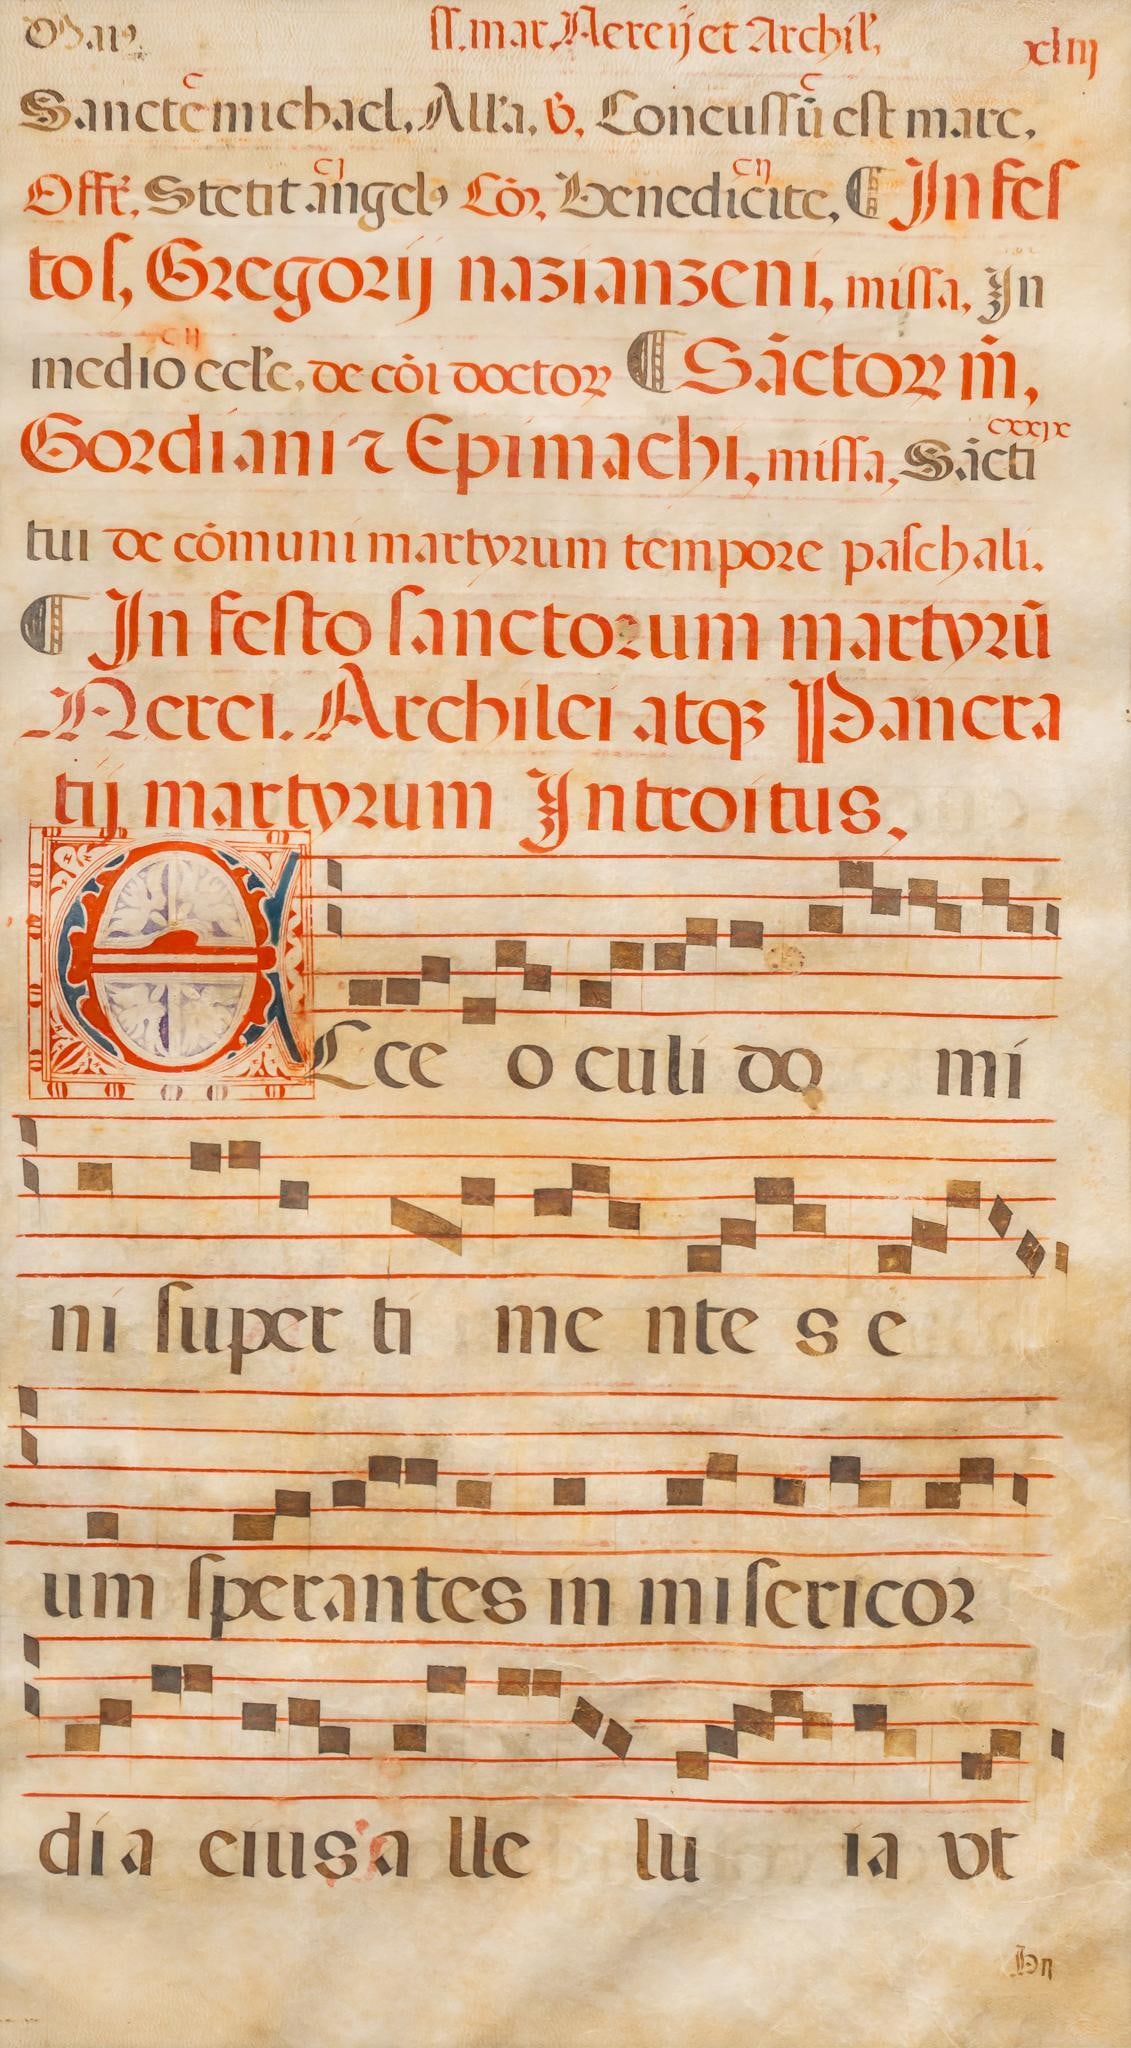 ſſ. mar. Nereij et Archil', xliij
Sancte michael, All'a. v̓. Concuſſũ eſt mare, cĩ cĩ
Offr̃. Stetit ãngelꝰ Cõr, Benedicite, ⸿ In feſ cj cij
to ſ, Gregorij nazianzeni, miſſa, In
medio eccl'e, de cõi doctoꝝ ⸿ Sãctoꝝ m̃, cij
Gordiani ⁊ Epimachi, miſſa, Sãcti cxxix
tui de cõmuni martyrum tempore paſchali.
⸿ In feſto ſanctorum martyrũ
Nerei. Archilei atqꝫ Pancra
tij martyrum Introitus,
ECce o culi do mi
ni ſuper ti me nte s e
um ſperantes in miſericor
di a eius a lle lu ia vt